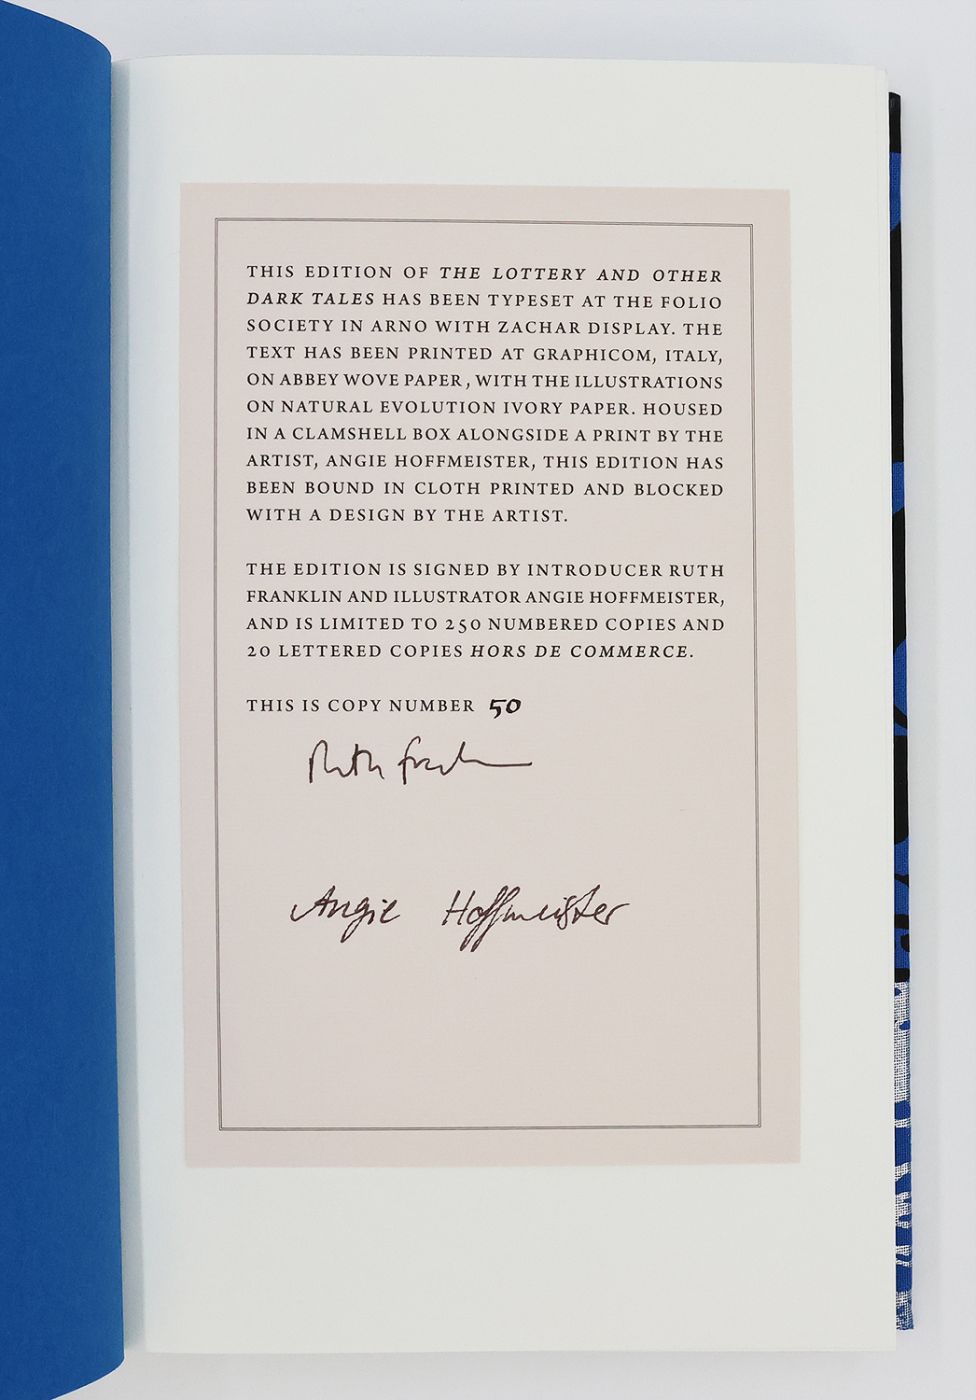 THIS EDITION OF THE LOTTERY AND OTHER
DARK TALES HAS BEEN TYPESET AT THE FOLIO
SOCIETY IN ARNO WITH ZACHAR DISPLAY. THE
TEXT HAS BEEN PRINTED AT GRAPHICOM, ITALY,
ON ABBEY WOVE PAPER, WITH THE ILLUSTRATIONS
ON NATURAL EVOLUTION IVORY PAPER. HOUSED
IN A CLAMSHELL BOX ALONGSIDE A PRINT BY THE
ARTIST, ANGIE HOFFMEISTER, THIS EDITION HAS
BEEN BOUND IN CLOTH PRINTED AND BLOCKED
WITH A DESIGN BY THE ARTIST.
THE EDITION IS SIGNED BY INTRODUCER RUTH
FRANKLIN AND ILLUSTRATOR ANGIE HOFFMEISTER,
AND IS LIMITED TO 250 NUMBERED COPIES AND
20 LETTERED COPIES HORS DE COMMERCE.
THIS IS COPY NUMBER 50
Ruth Franklin
Angie Hoffmeister